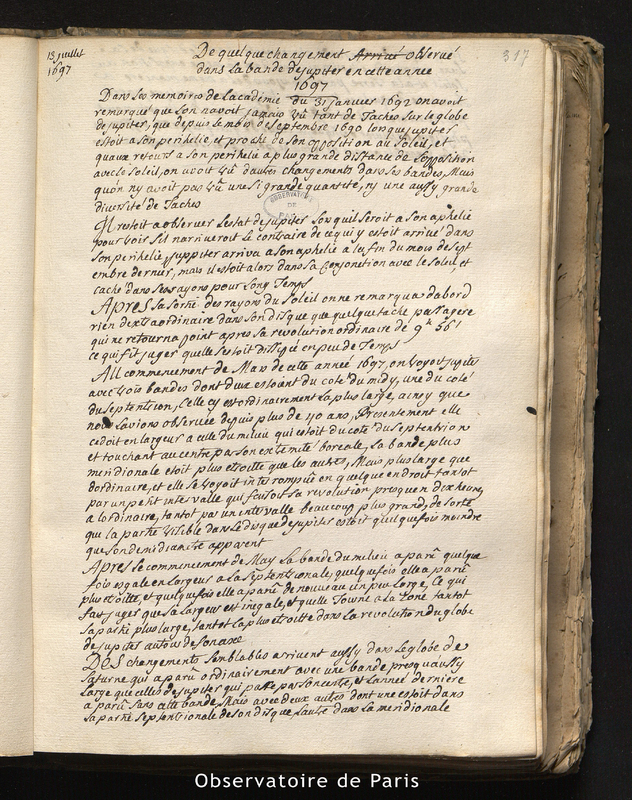 13 juillet
1697
317
De quelque changement Arrivé observé
dans la bande de jupiter en cette année
1697
Dans les memoires de lacademie du 31 janvier 1692 on avoit
remarqué que lon navoit jamais vû tant de Taches sur le globe
de jupiter, que depuis le mois de septembre 1690 lorsque jupiter
estoit a son perihelie, et proche de son opposition au Soleil, et
quaux retours a son perihelie a plus grande distance de lopposition
avec le soleil, on avoit vû dautres changements dans ses bandes, Mais
quon ny avoit pas vû une si grande quantité, ny une aussy grande
diversité de Taches
OBSERVATOIRE
DE
Il restoit a observer lestat de jupiter lors quil seroit a son aphelie
pour voir sil narriveroit le contraire de ce qui y estoit arrivé dans
son perihelie, juppiter arriva a son aphelie a la fin du mois de sept
embre dernier, mais il estoit alors dans la Conjonction avec le soleil, et
caché dans ses rayons pour long Temps
Apres la sortie des rayons du Soleil on ne remarqua dabord
rien dextraordinaire dans son disque que quelque tache passagere
qui ne retourna point apres sa revolution ordinaire de 9h 56'
ce qui fit juger quelle sestoit dissipée en peu de Temps
All commencement de Mars de cette anneé 1697, on voyoit jupiter
avec trois bandes dont deux estoient du coté du midy, une du coté
du septentrion, Celle cy est ordinairement la plus large, ainsy que
nous lavions observée depuis plus de 40 ans, Presentement elle
cedoit en largeur a celle du milieu qui estoit du coté du septentrion
et touchant au centre par son extremité boreale, La bande plus
meridionale etoit plus etroitte que les autres, Mais plus large que
dordinaire, et elle se voyoit interrompüe en quelque endroit tantot
par un petit intervalle qui faisoit sa revolution presque en dix heures
a lordinaire, tantot par un intervalle beaucoup plus grand, de sorte
que la partie visible dans le disque de jupiter estoit quelquefois moindre
que son demidiametre apparent
Apres le commencement de May la bande du milieu a parû quelque
fois egale en largeur a la septentrionale, quelquefois elle a parû
plus etroitte, et quelquefois elle a parû de nouveau un peu large, Ce qui
fait juger que sa largeur est inegale, et quelle Tourne a la Zone tantot
sa partie plus large, tantot la plus etroitte dans la revolution du globe
de jupiter autour de son axe
DES changements semblables arrivent aussy dans le globe de
saturne qui a paru ordinairement avec une bande presqu'aussy
large que celles de jupiter qui passe par son centre, et lanneé derniere
a parû sans cette bande, Mais avec deux autres dont une estoit dans
la partie septentrionale de son disque, lautre dans la meridionale
Observatoire de Paris